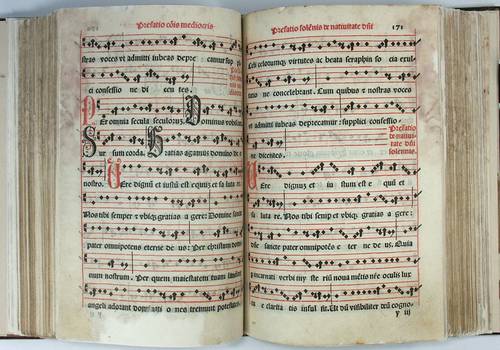 Prefatio cōis mediocris
stras voces vt admitti iubeas depre camur sup
ci confessio ne di cen tes.
Er omnia secula seculorum. Dominus vobiscum
Sur sum corda. Gratias agamus domino de o
nostro. Vere dignū et iustū est equū et sa luta re
Nos tibi semper et vbiqz gratias a gere: Domine sancte
pater omnipotens eterne de us: Per christum domi
num nostrum. Per quem maiestatem tuam laudant
angeli adorant do
nes tremunt potestates
Prefatio solēnis de natiuitate dn̄i 171
Celi celorumqz virtutes ac beata seraphin so cia exul
tatio ne concelebrant. Cum quibus et nostras voces
vt admitti iubeas deprecamur: supplici confessio
Prefatio
de natiui-
tate dn̄i
solennis.
ne dicentes.
Vere dignuz et iu stum est e quū et
sa luta re. Nos tibi semp et vbiqz gratias a gere:
Dn̄e sancte pater omnipotēs e ter ne de us. Quia
p incarnati verbi my ste riū noua mētis nr̄e oculis lux
tu e clarita tis inful sit. Ut dū visibiliter deū cogno-
y iij